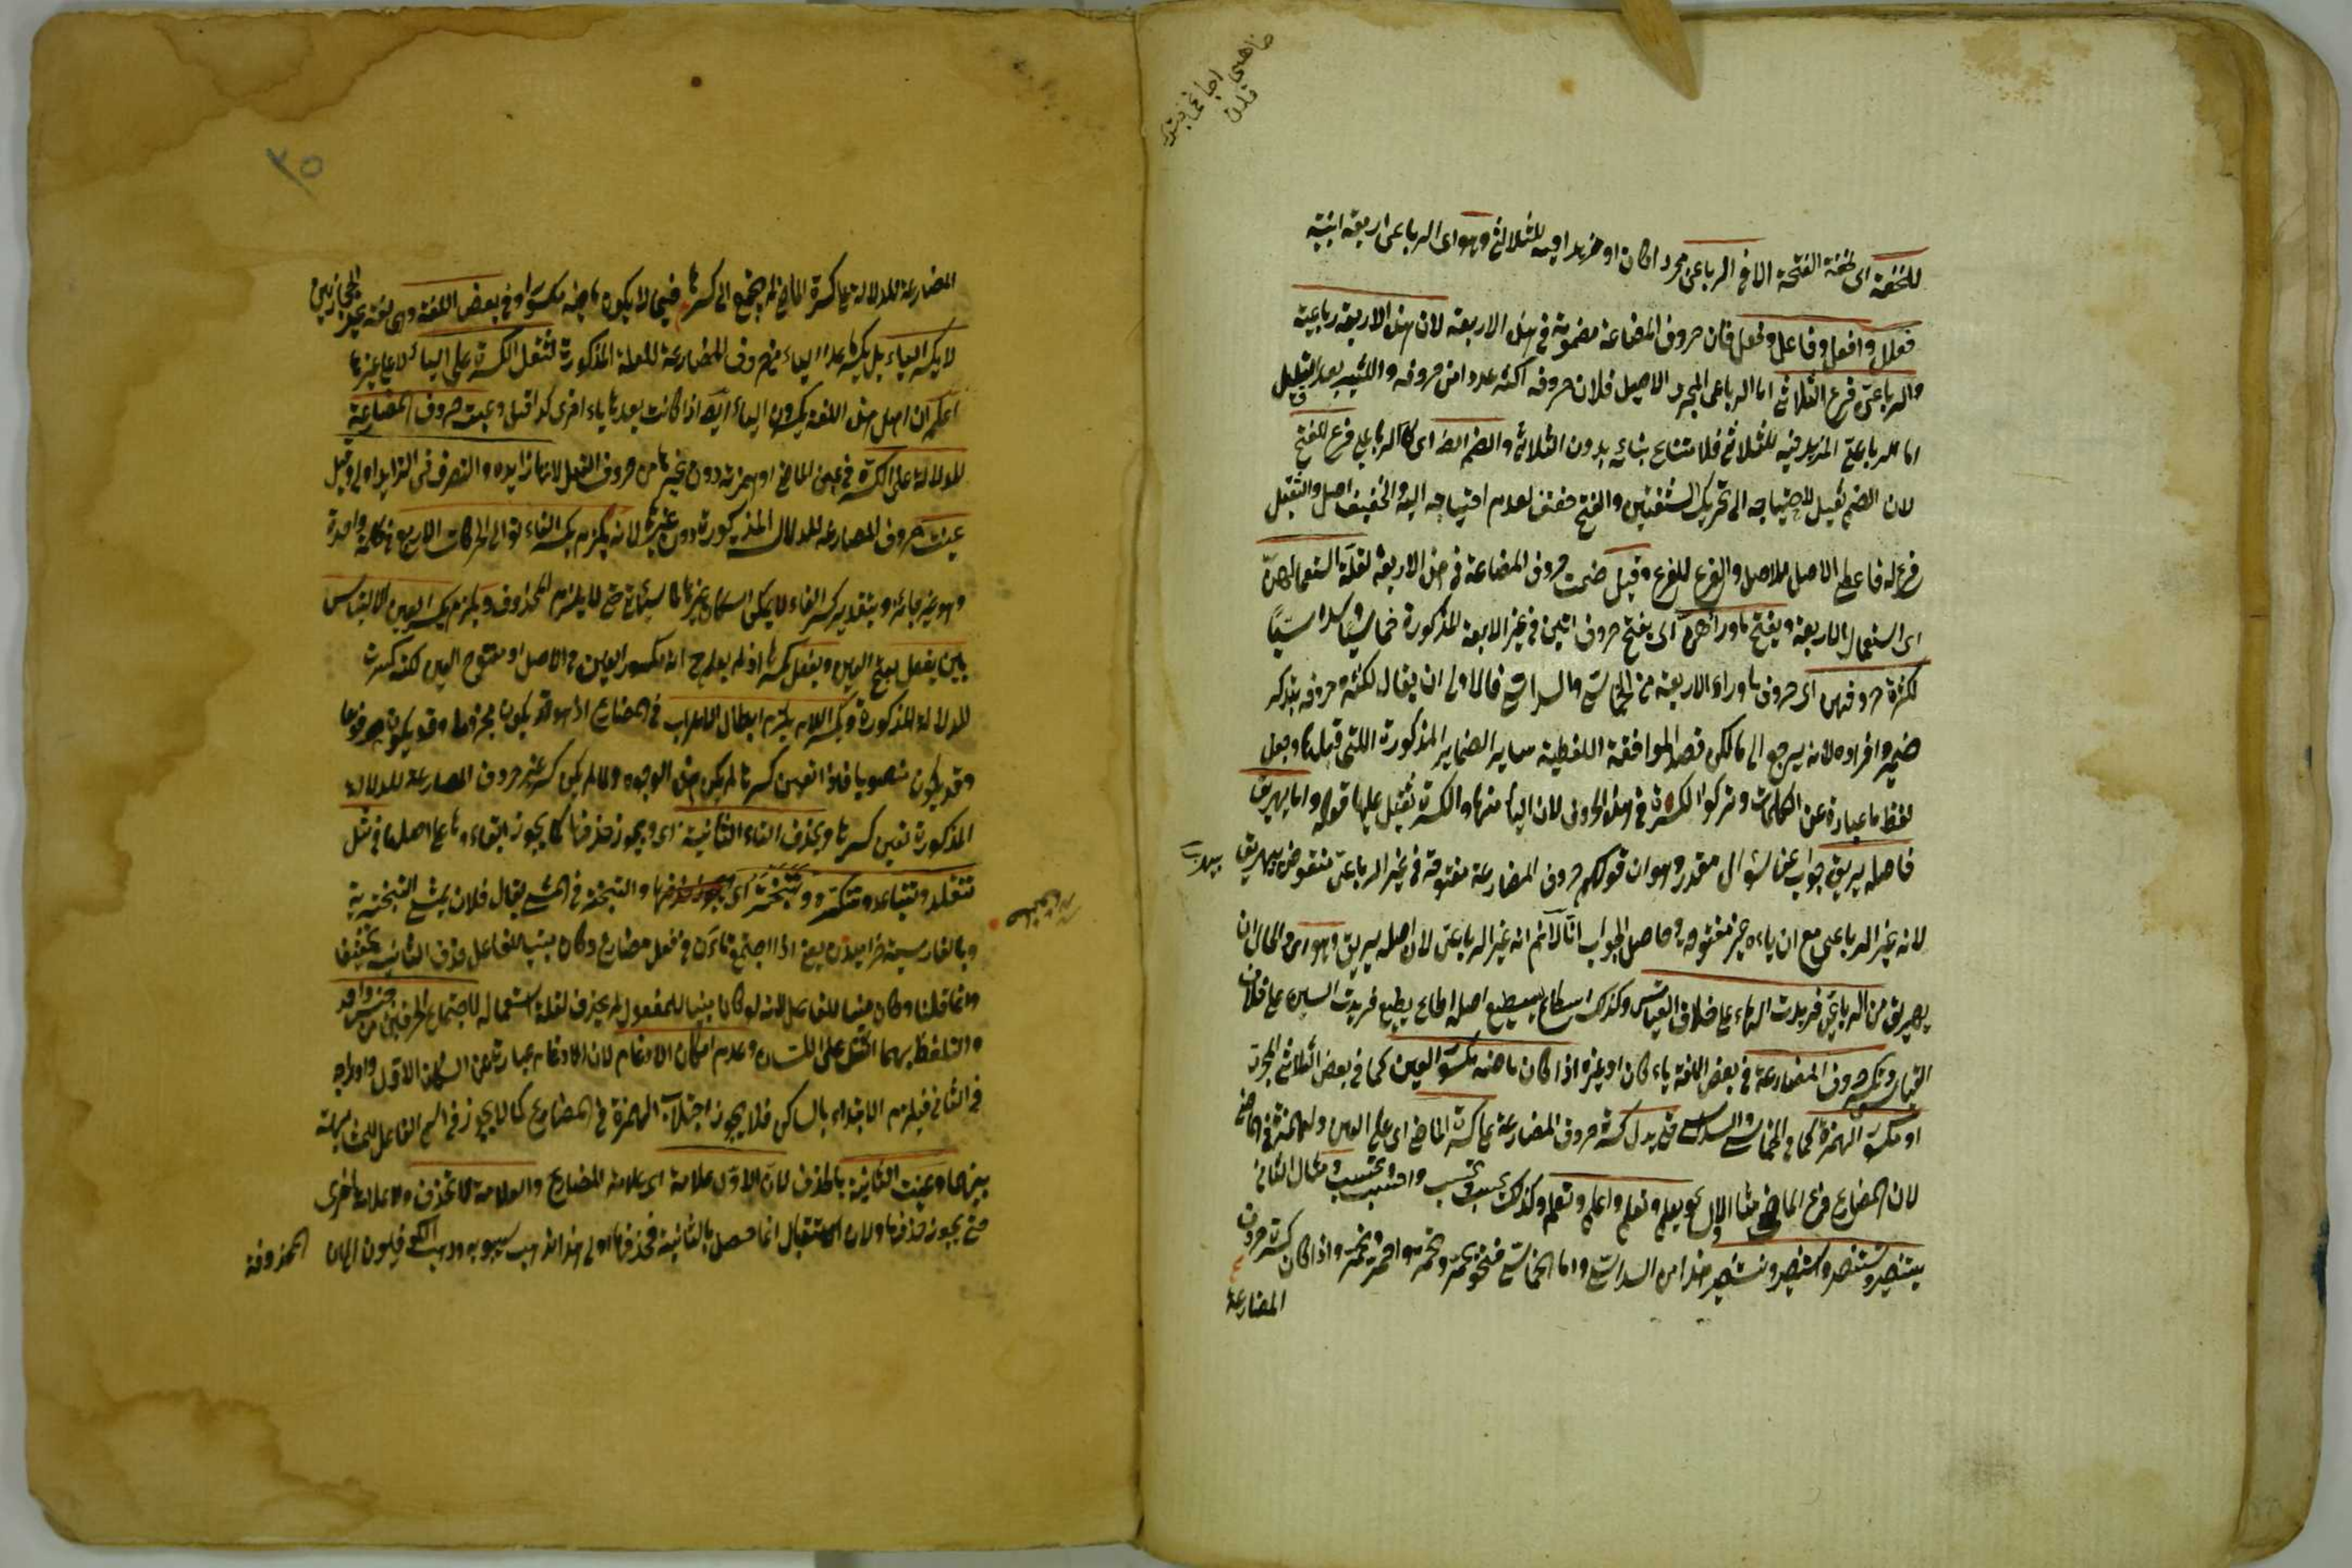 للخفة اى لخفة الفتحة الا فى الرباعى مجردا كان او مزيدا فيه للثلاثى وهو اى الرباعى اربعة ابنية
فعلل وافعل وفاعل وفعل فان حروف المضارعة مضمومة فى هذه الاربعة لان هذه الاربعة رباعية
والرباعى فرع الثلاثى اما الرباعى المجرد الاصيل فلان حروفه اكثر عددا من حروفه والكثير بعد القليل
اما الرباعى المزيد فيه للثلاثى فلامتناع بنائه بدون الثلاثى والضم ايضا اى كالرباعى فرع للفتح
لان الضم ثقيل لاحتياجه الى تحريك الشفتين والفتح خفيف لعدم احتياجه اليه والخفيف اصل والثقيل
فرع له فاعطى الاصل للاصل والفرع للفرع وقيل ضمت حروف المضارعة فى هذه الاربعة لقلة استعمالهن
اى استعمال الاربعة ويفتح ما وراءهن اى يفتح حروف اتين فى غير الاربعة المذكورة خماسيا وسداسيا
لكثرة حروفهن اى حروف ما وراء الاربعة من الخماسى والسداسى فالاولى ان يقال لكثرة حروفه بتذكير
ضمير وافراده لانه يرجع الى ما لكن قصد الموافقة اللفظية بساير الضماير المذكورة اللتى قبلها وجعل
لفظ ما عبارة عن الكلمات وتركوا الكسرة فى هذه الحروف لان الياء منها والكسرة ثقيل عليها قوله واما يهريق
فاصله يريق جواب عن سؤال مقدر وهو ان قولكم حروف المضارعة مفتوحة فى غير الرباعى منقوض بيهريق
لانه غير الرباعى مع ان ياءه غير مفتوحة وحاصل الجواب انا لا نم انه غير الرباعى لان اصله يريق وهو اى والحال ان
يهريق من الرباعى فزيدت الهاء على خلاف القياس وكذلك اسطاع يسطيع اصله اطاع يطيع فزيدت السين على خلاف
القياس وتكسر حروف المضارعة فى بعض اللغة ياء كان او غيره اذا كان ماضيه مكسور العين كما فى بعض الثلاثى المجرد
او مكسور الهمزة كما فى الخماسى والسداسى حتى يدل كسرة حروف المضارعة على كسرة الماضى اى على العين والهمزة فى الماضى
لان المضارع فرع الماضى مثال الاول نحو يعلم وتعلم واعلم ونعلم وكذلك يحسب وتحسب واحسب ونحسب ومثال الثانى
يستنصر وتستنصر واستنصر ونستنصر هذا من السداسى واما الخماسى فنحو يحمر وتحمر واحمر ونحمر واذا كان كسرة حروف
المضارعة
المضارعة للدلالة على كسرة الماضى لم يحتج الى كسرها فيما لا يكون ماضيه مكسورا وفى بعض اللغة وهى لغة غير الحجازيين
لا يكسر الياء بل يكسر ما عدا الياء من حروف المضارعة للعلة المذكورة لثقل الكسرة على الياء لا على غيرها
اعلم ان اهل هذه اللغة يكسرون الياء ايضا اذا كانت بعدها ياء اخرى كذا قيل وعينت حروف المضارعة
للدلالة على الكسرة فى عين الماضى او همزته دون غيرها من حروف الفعل لانها زايدة والتصرف فى الزايد اولى وقيل
عينت حروف المضارعة للدلالة المذكورة دون غيرها لانه يلزم بكسر الفاء توالى الحركات الاربع فى كلمة واحدة
وهو غير جائز وبتقدير كسر الفاء لا يمكن اسكان غيرها كما سيئاتى حتى لا يلزم المحذوف ويلزم بكسر العين الالتباس
بين يفعل بفتح العين ويفعل بكسرها اذ لم يعلم ح انه مكسور العين فى الاصل او مفتوح العين لكنه كسرت
للدلالة المذكورة وبكسر اللام يلزم ابطال الاعراب فى المضارع اذ هو قد يكون مجزوما وقد يكون مرفوعا
وقد يكون منصوبا فلو انعين كسرها لم يكن هذه الوجوه ولما لم يكن كسر غير حروف المضارعة للدلالة
المذكورة تعين كسرها ويحذف التاء الثانية اى ويجوز حذفها كما يجوز ابقاء ها على اصلها فى مثل
تتقلد وتتباعد وتتبختر اى والتبختر فى المشى يقال فلان يمشى التبخترية
وبالفارسية خراميدن يعنى اذا اجتمع تاءان فى فعل مضارع وكان مبنيا للفاعل حذف الثانية تخفيفا
وانما قلنا وكان مبنيا للفاعل لانه لو كان مبنيا للمفعول لم يحذف لقلة استعماله لاجتماع الحرفين من جنس واحد
والتلفظ بهما اثقل على اللسان وعدم امكان الادغام لان الادغام عبارة عن اسكان الاول وادراجه
فى الثانى فيلزم الابتداء بالساكن فلا يجوز اجتلاب الهمزة فى المضارع كما لا يجوز فى اسم الفاعل للمشابهة
بينهما وعينت الثانية بالحذف لان الاول علامة اى علامة المضارع والعلامة لا تحذف ولا علامة اخرى
حتى يجوز حذفها ولان الاستقبال انما حصل بالثانية فحذفها اولى هذا مذهب سيبويه وذهب الكوفيون الى ان
المحذوفة